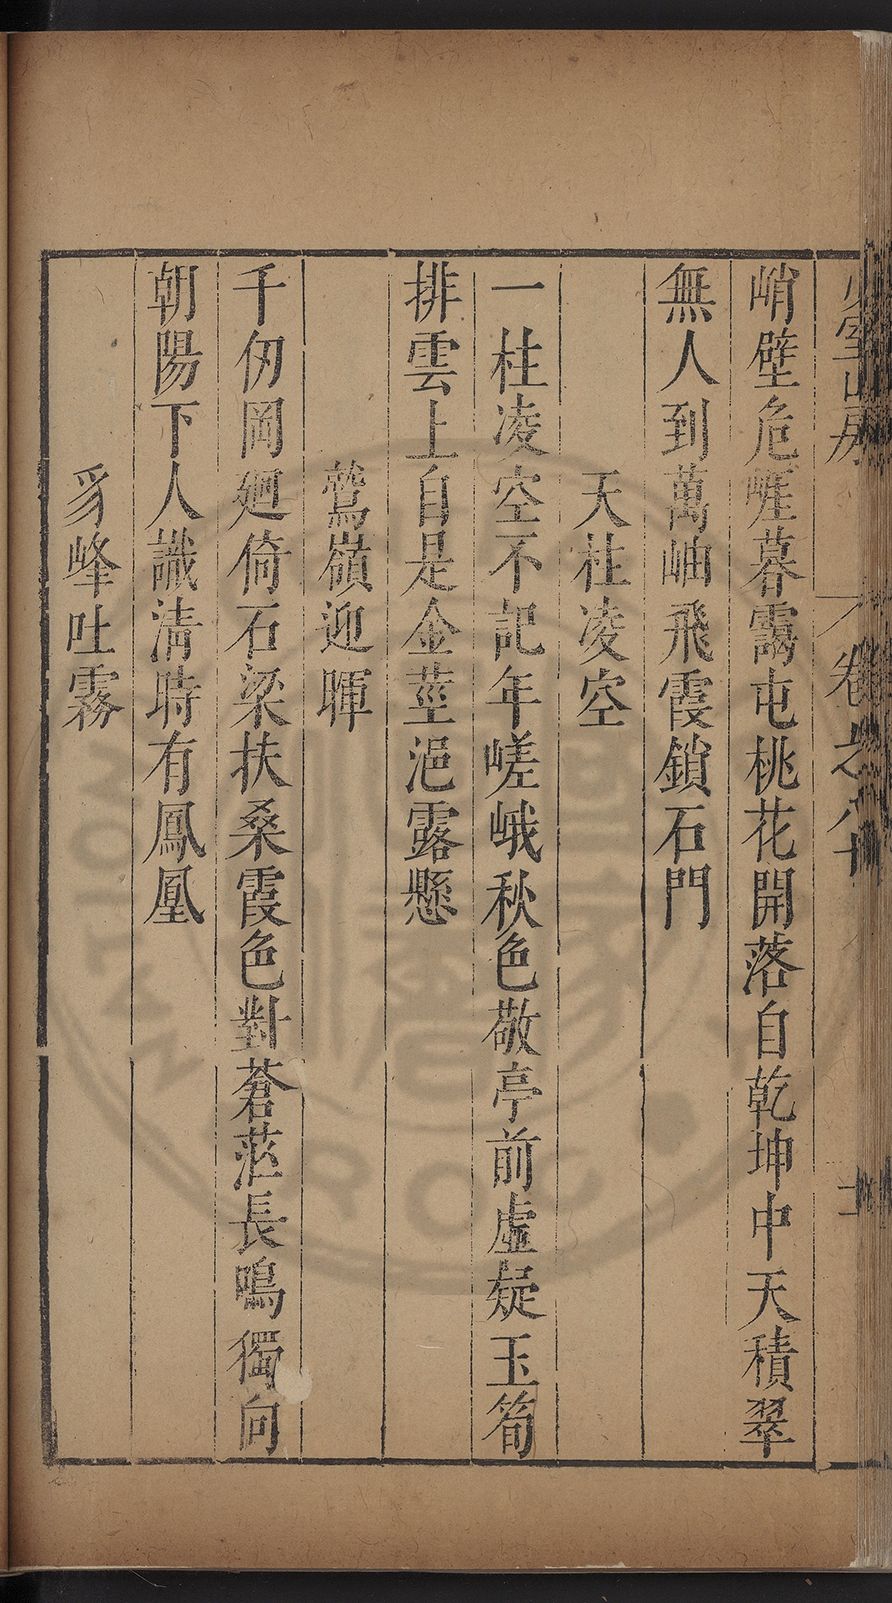 少室山房 卷之八十 十二
峭壁危崕暮靄屯桃花開落自乾坤中天積翠
無人到萬岫飛霞鎖石門
天柱凌空
一柱凌空不記年嵯峨秋色敬亭前虛疑玉筍
排雲上自是金莖浥露懸
鷲嶺迎暉
千仞岡廻倚石梁扶桑霞色對蒼茫長鳴獨向
朝陽下人識清時有鳳凰
豸峰吐霧